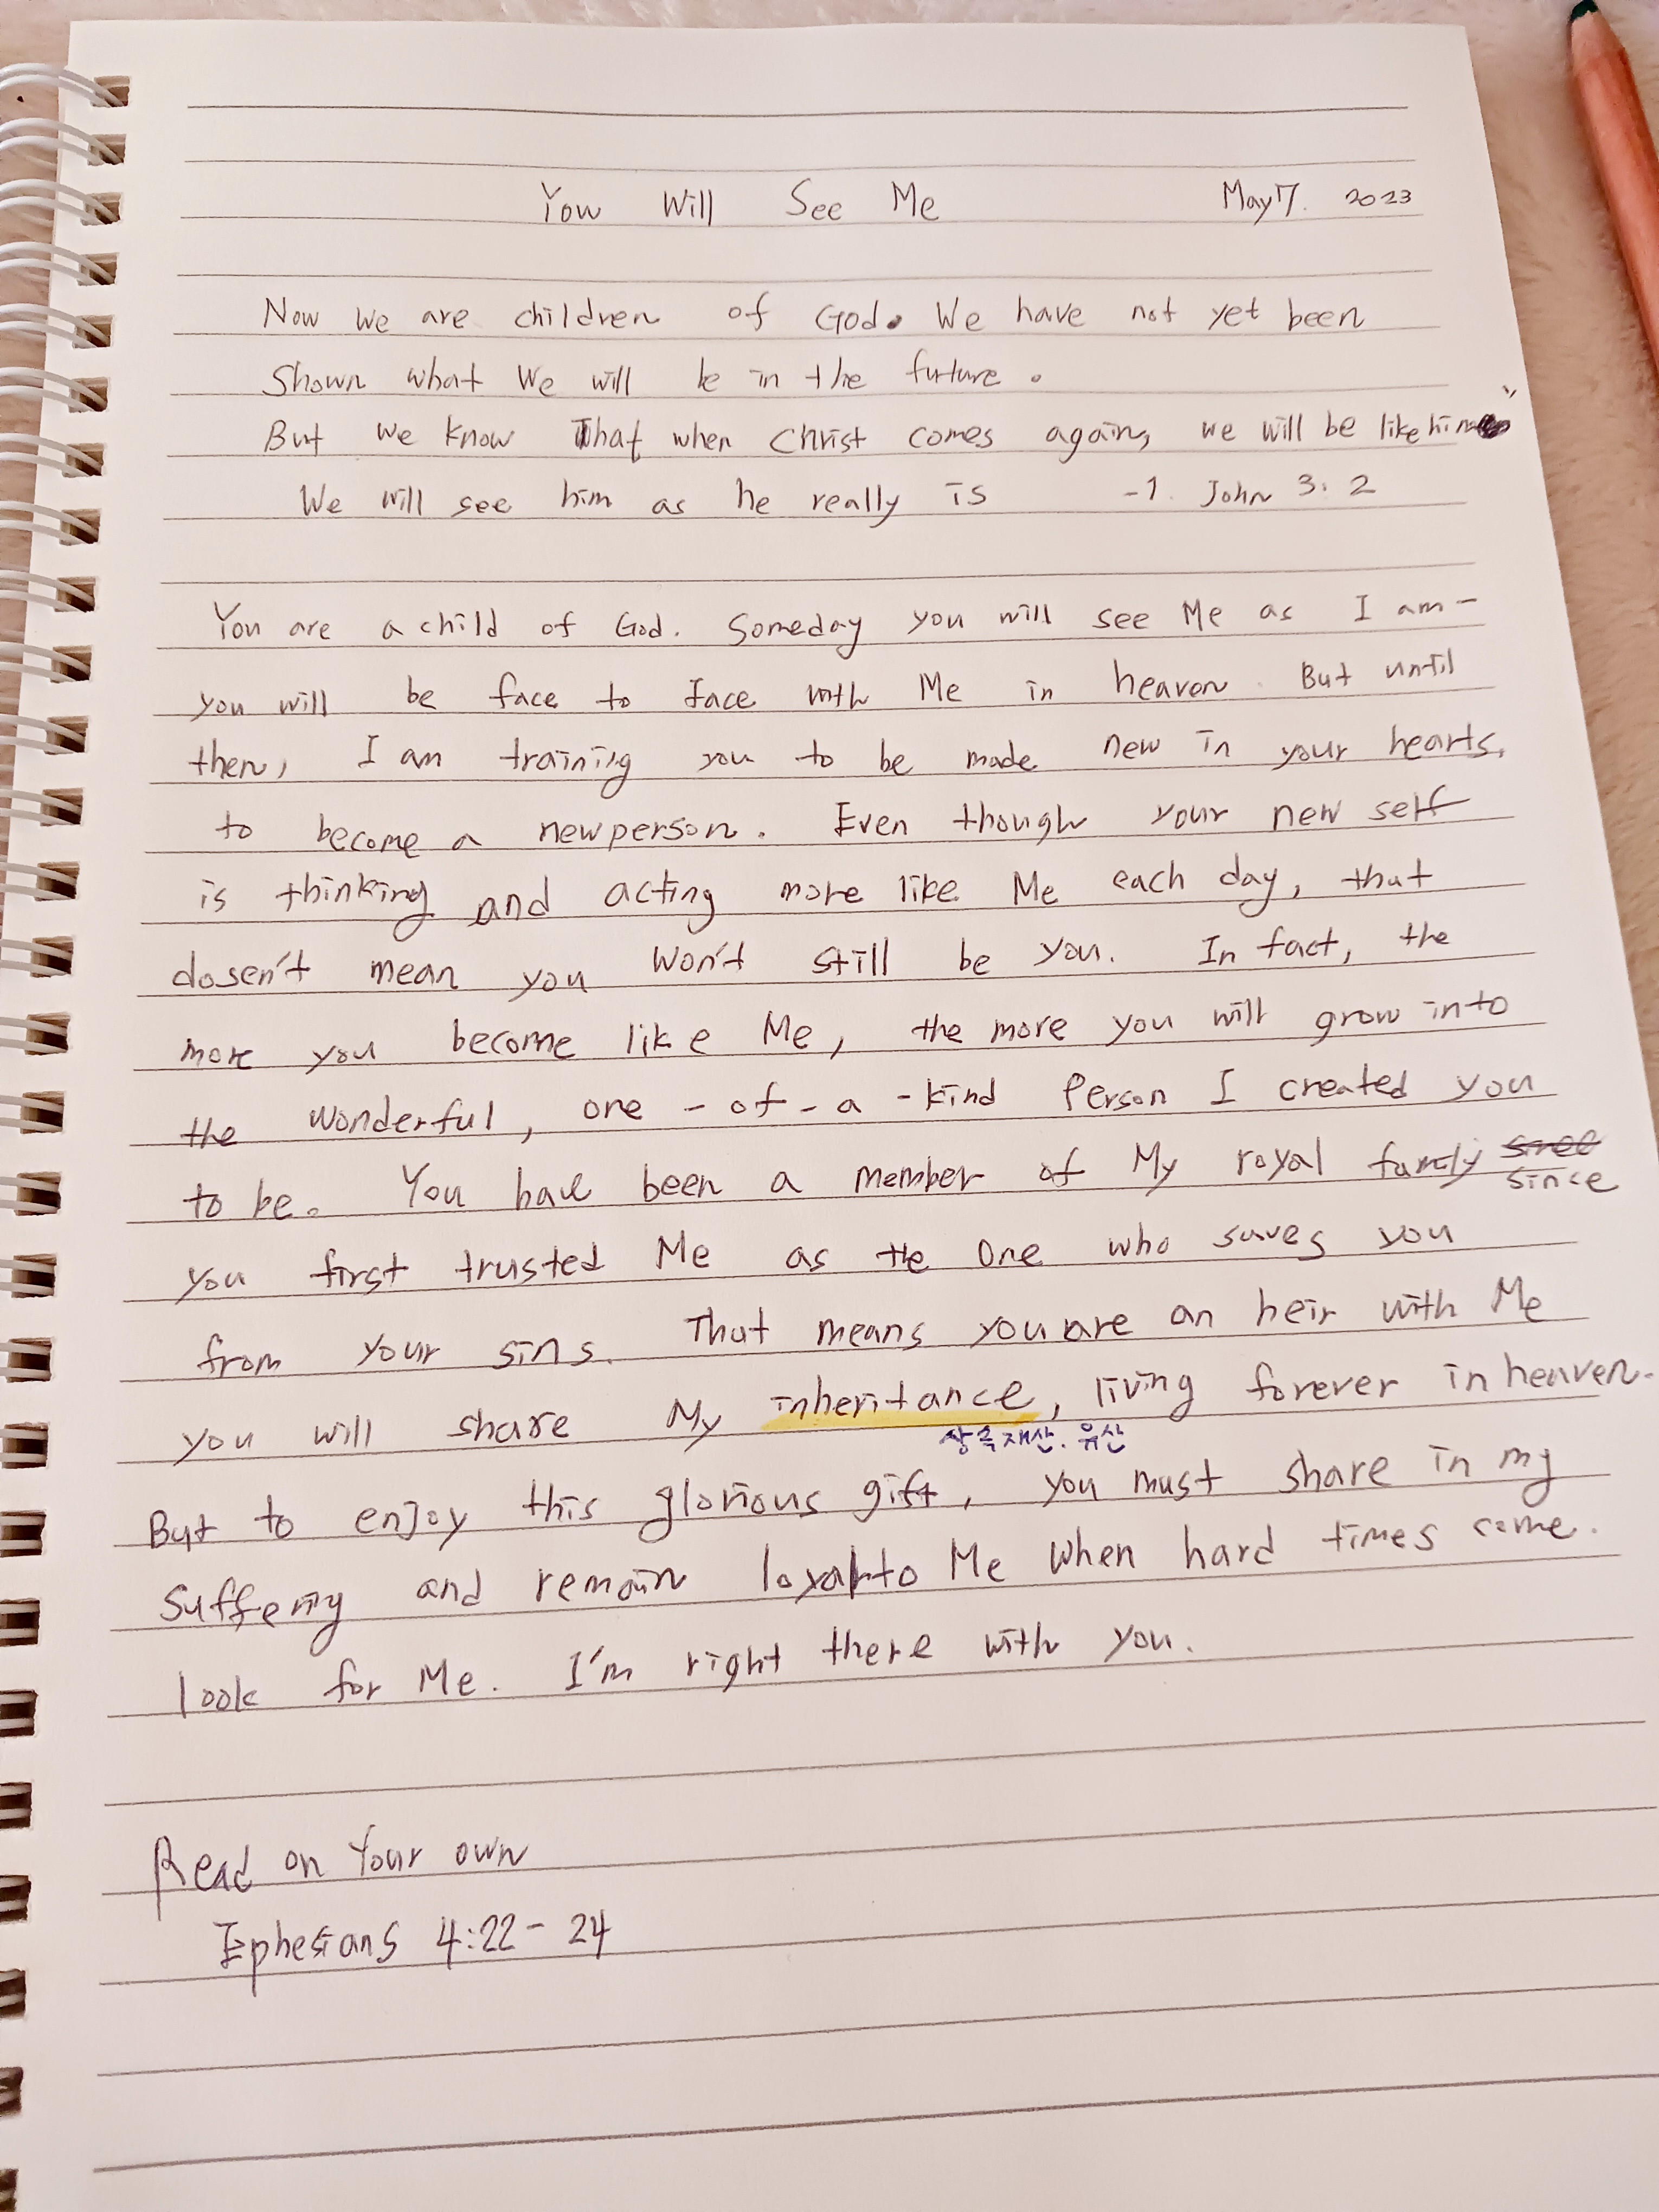 You Will See Me May 7. 2023
Now we are children of God. We have not yet been
Shown what We will be in the furture.
But we know That when Christ comes again, we will be like him
We will see him as he really is -1. John 3:2
You are a child of God. Someday you will see Me as I am-
you will be face to face with Me in heaven. But until
then, I am training you to be made new in your hearts,
to become a new person. Even though your new self
is thinking and acting more like Me each day, that
dosen't mean you won't still be you. In fact, the
more you become like Me, the more you will grow into
the wonderful, one-of-a-kind Person I created you
to be. You have been a member of My royal family
since
you first trusted Me as the One who saves you
from your sins. That means you are an heir with Me
you will share My inheritance, living forever in heaven.
상속재산. 유산
But to enjoy this glorious gift, you must share in my
suffering and remain loyal to Me when hard times come.
look for Me. I'm right there with you.
Read on Your own
Ephesians 4:22-24